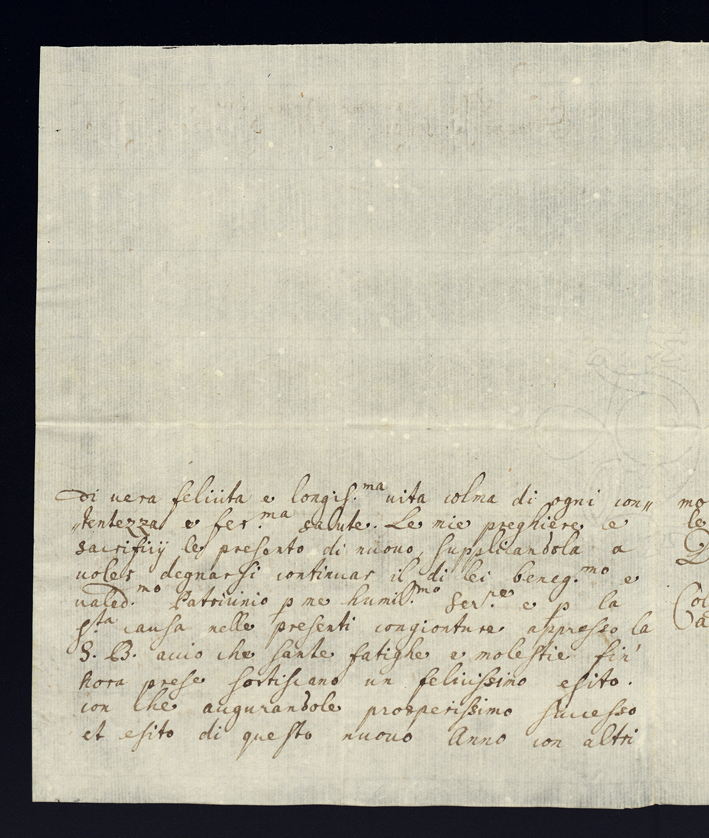 di vera felicita e longis.ma vita colma di ogni con„
„tentezza e fer.ma salute. Le mie preghiere e
sacrifity le presento di nuovo, supplicandola a
voler degnarsi continuar il di lei beneg.mo e
valed.mo Patricinio p me humil.mo Ser.re e p la
s.ta causa nelle presenti congionture appresso la
S. B. accio che sante fatighe e molestie fin'
hora prese sortiscano un felicissimo esito.
con che augurandole prosperissimo successo
et esito di questo nuovo Anno con altri
mo
le
Col